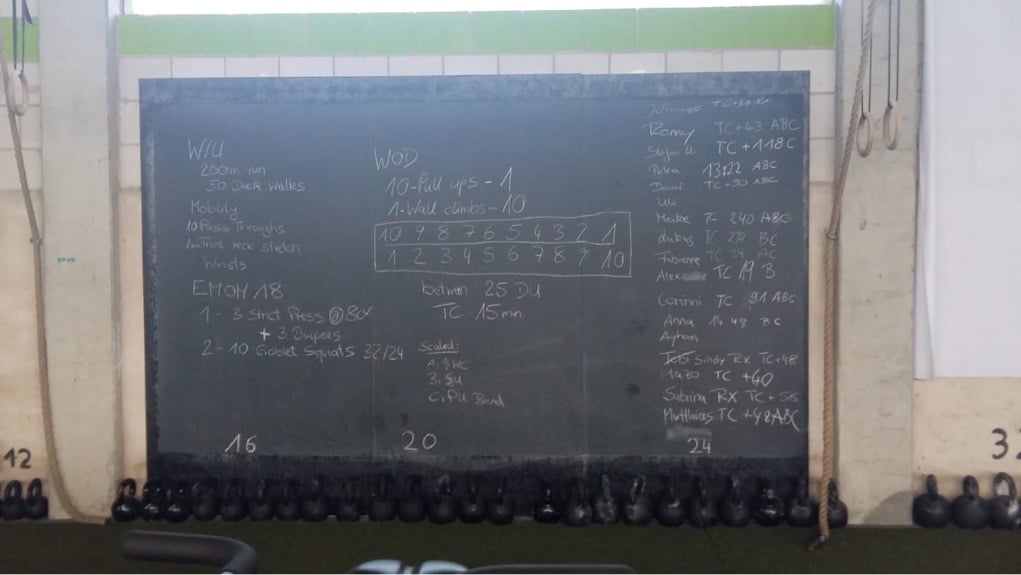 W/U
200m run
50 Duck Walks
Mobility
10 Pass Throughs
stretch
Wrists
EMOM 18
1 - 3 Strict Press @ 80%
+ 3 Burpees
2 - 10 Goblet Squats 32/24
16
WOD
10 - Pull ups - 1
1 - Wall climbs - 10
10 9 8 7 6 5 4 3 2 1
1 2 3 4 5 6 7 8 9 10
25 DU
TC 15 min.
Scaled:
A. 3/4 WC
B. SU
C. PU Band
20
Romy TC+43 ABC
Stefan U. TC +118 C
Petra 13:22 ABC
TC +50 ABC
Uli
Meike TC 240 ABC
Lukas TC BC
Fabienne TC AC
TC 19 B
TC 91 ABC
Anna 14.48 BC
Ayhan
Sindy RX TC+48
TC +40
Sabrina RX TC +56
Matthias TC +48 ABC
24
12